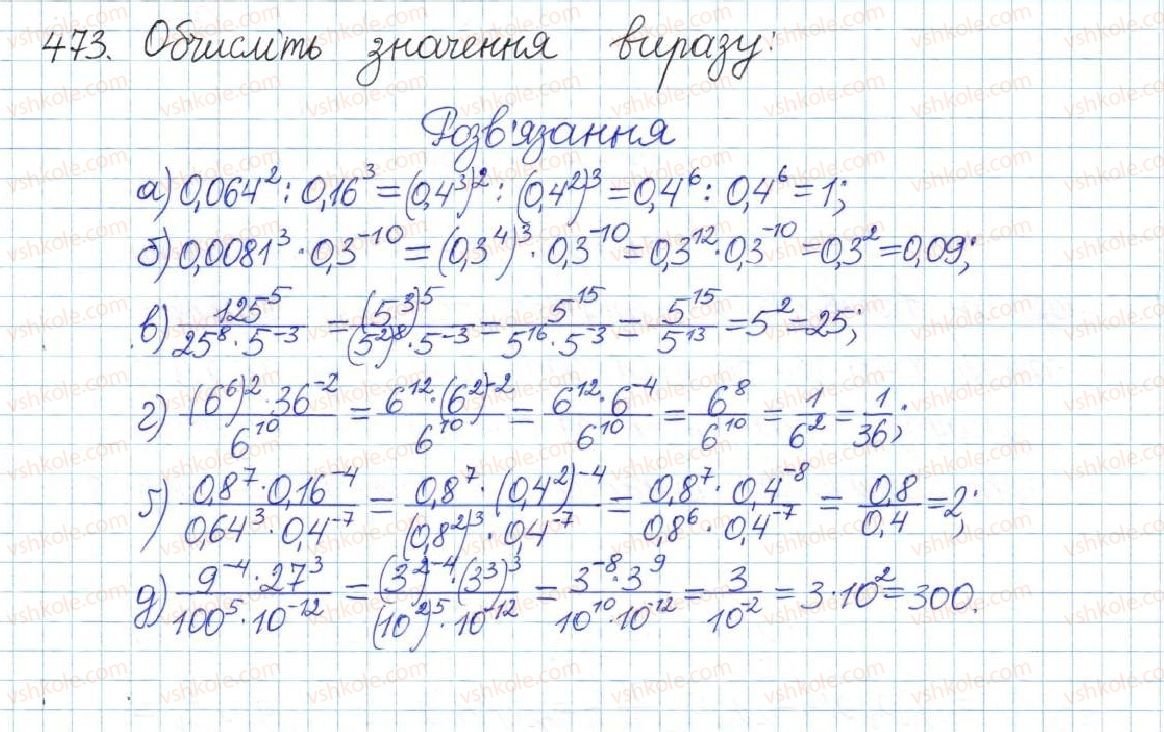 473. Обчисліть значення виразу:
Розв'язання
а) 0,064² : 0,16³ = (0,4³)² : (0,4²)³ = 0,4⁶ : 0,4⁶ = 1;
б) 0,0081³ · 0,3⁻¹⁰ = (0,3⁴)³ · 0,3⁻¹⁰ = 0,3¹² · 0,3⁻¹⁰ = 0,3² = 0,09;
в) 125⁵ / (25⁸ · 5⁻³) = (5³)⁵ / ((5²)⁸ · 5⁻³) = 5¹⁵ / (5¹⁶ · 5⁻³) = 5¹⁵ / 5¹³ = 5² = 25;
г) ((6⁶)² · 36⁻²) / 6¹⁰ = (6¹² · (6²)⁻²) / 6¹⁰ = (6¹² · 6⁻⁴) / 6¹⁰ = 6⁸ / 6¹⁰ = 1 / 6² = 1 / 36;
ґ) (0,8⁷ · 0,16⁻⁴) / (0,64³ · 0,4⁻⁷) = (0,8⁷ · (0,4²)⁻⁴) / ((0,8²)³ · 0,4⁻⁷) = (0,8⁷ · 0,4⁻⁸) / (0,8⁶ · 0,4⁻⁷) = 0,8 / 0,4 = 2;
д) (9⁻⁴ · 27³) / (100⁵ · 10⁻¹²) = ((3²)⁻⁴ · (3³)³) / ((10²)⁵ · 10⁻¹²) = (3⁻⁸ · 3⁹) / (10¹⁰ · 10⁻¹²) = 3 / 10⁻² = 3 · 10² = 300.